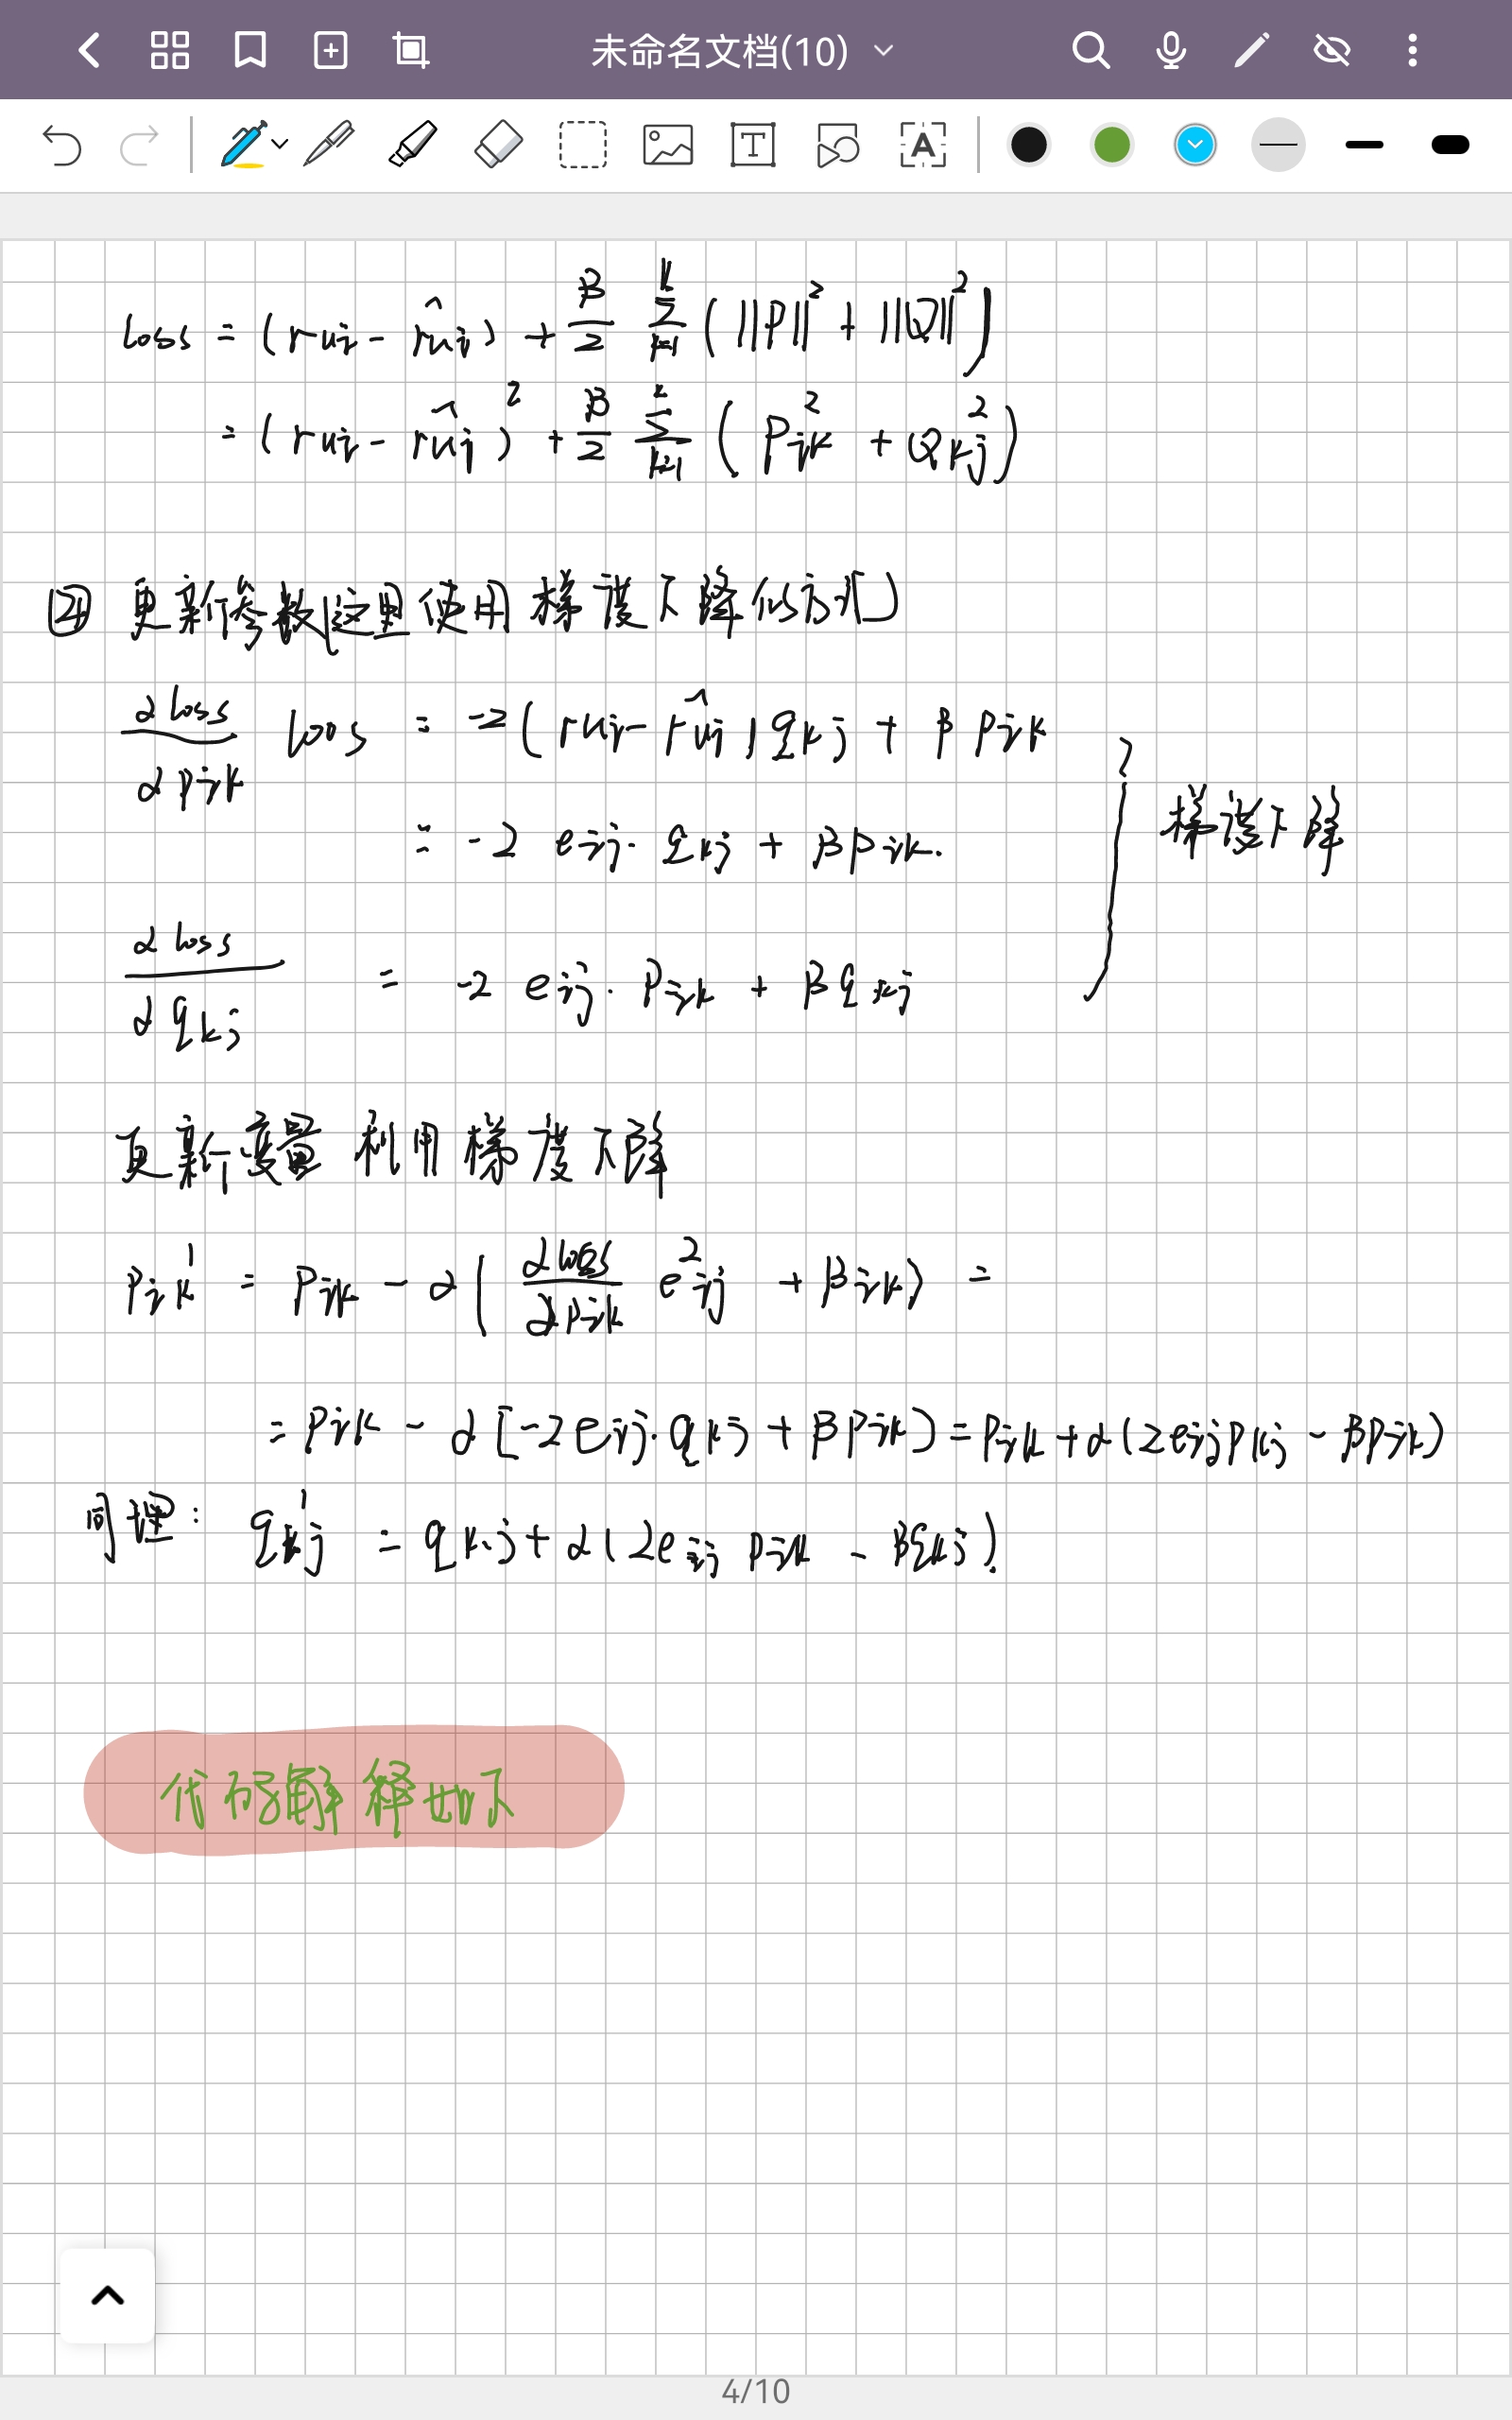 未命名文档(10)
loss = (rui - r̂ui) + β/2 Σ(k=1..k) (||P||² + ||Q||²)
= (rui - r̂uj)² + β/2 Σ(k=1..k) (Pik² + Qkj²)
④ 更新参数(这里使用梯度下降的方式)
∂loss/∂pik loss = -2(rui - r̂ui)qkj + β pik
= -2 eij · qkj + βpik.
梯度下降
∂loss/∂qkj = -2 eij · Pik + βqkj
更新变量 利用梯度下降
Pik' = Pik - α(∂loss/∂pik e²ij + βik) =
= Pik - α[-2eij·qkj + βPik) = Pik + α(2eijPkj - βPik)
同理: qkj' = qkj + α(2eij pik - βqkj)
代码解释如下
4/10